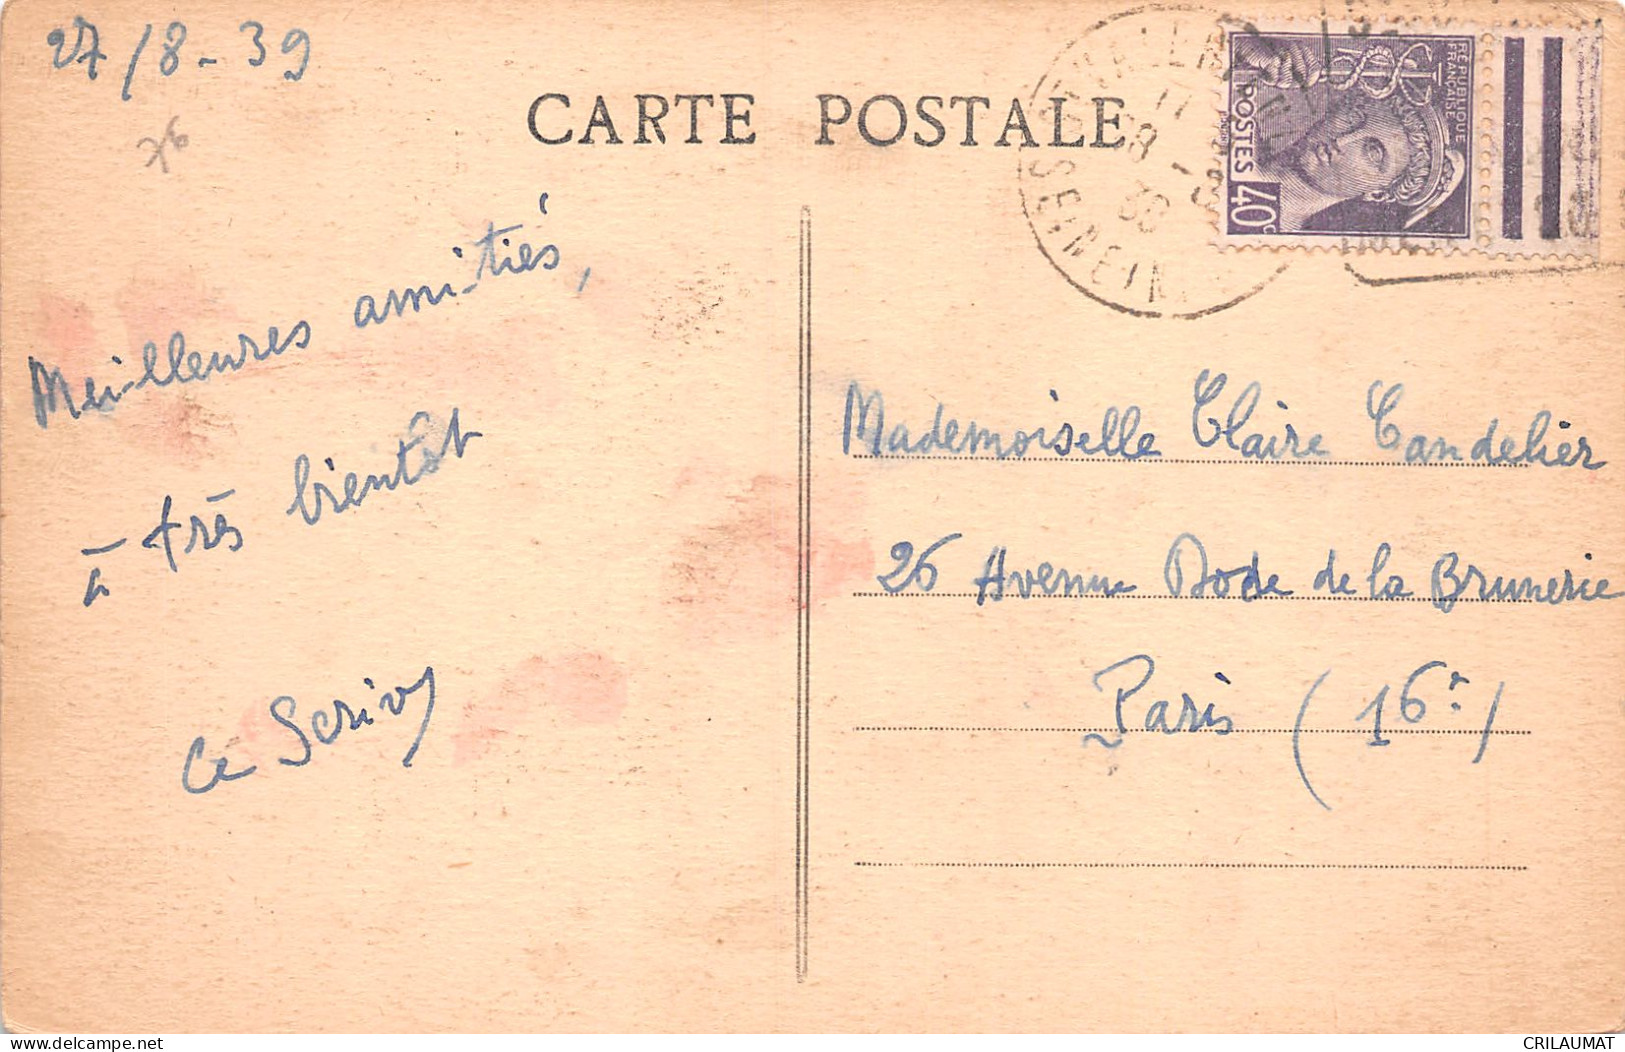 27/8-39
76
CARTE POSTALE
RÉPUBLIQUE
FRANÇAISE
POSTES
40c
28 - 8
39
Meilleures amitiés,
à très bientôt
Mademoiselle Claire Candelier
26 Avenue Rode de la Brunerie
Paris (16e)
delcampe.net
CRILAUMAT